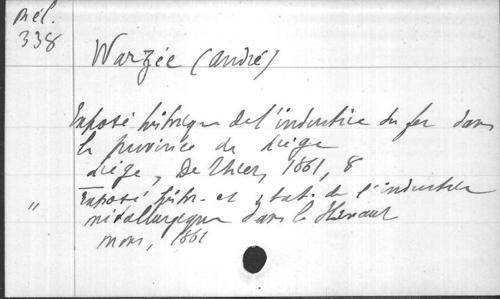 Mél.
338
Warzée (André)
Exposé historique de l'industrie du fer dans
la province de Liége
Liége, De Thier, 1861, 8
" Exposé hist. et stat. de l'industrie
métallurgique dans le Hainaut
Mons, 1861